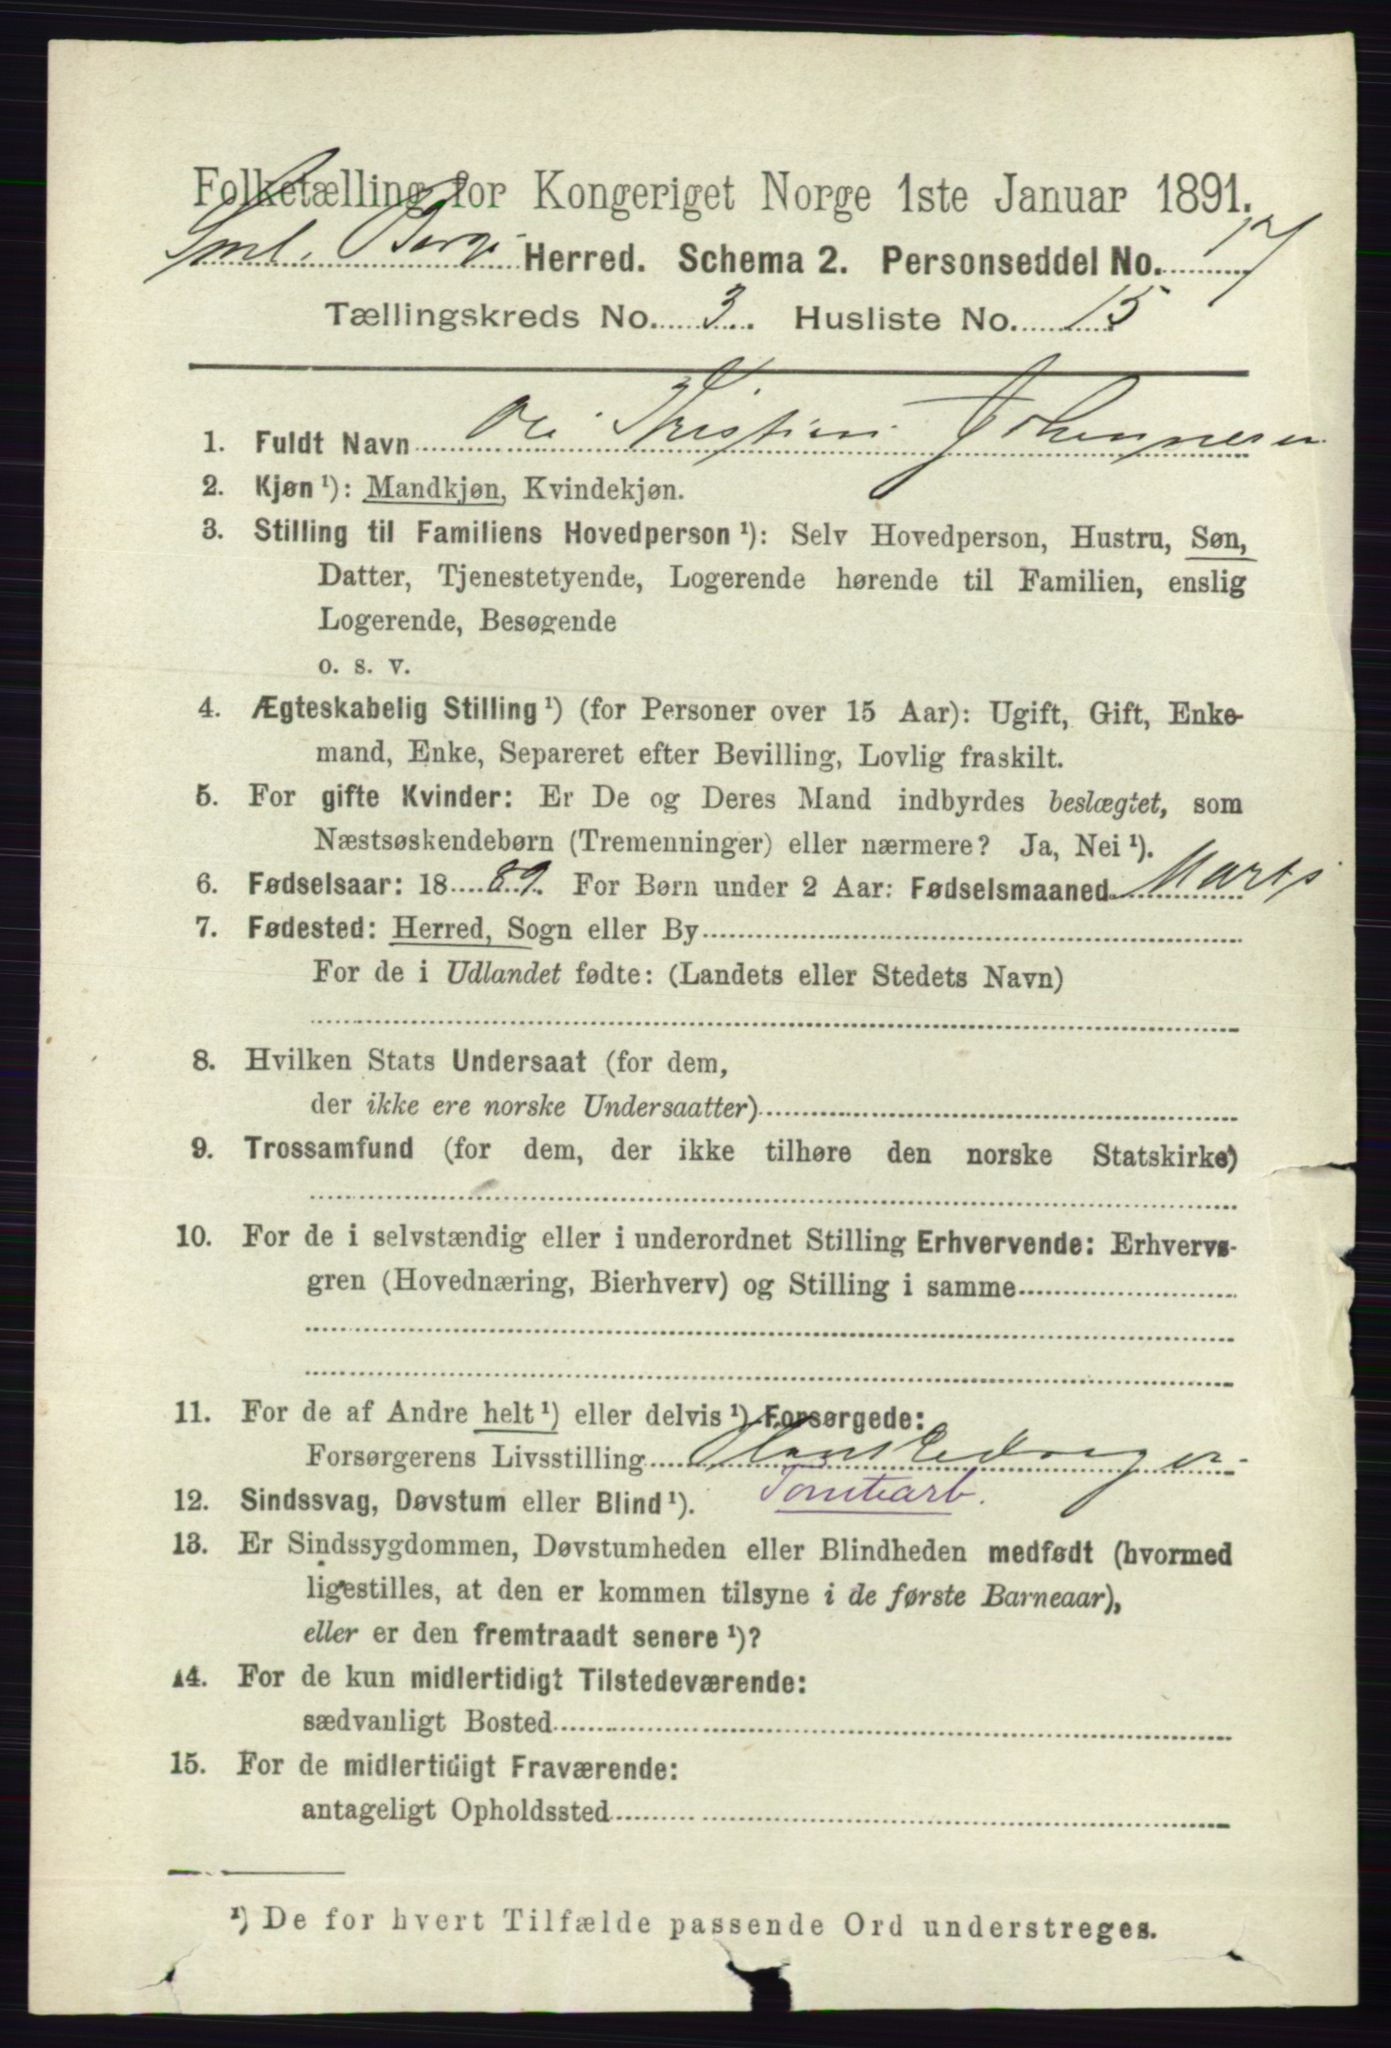 Folketælling for Kongeriget Norge 1ste Januar 1891.
Sml. Berg Herred. Schema 2. Personseddel No. 17
Tællingskreds No. 3. Husliste No. 15
1. Fuldt Navn Ole Kristian Johannesen
2. Kjøn ¹): Mandkjøn, Kvindekjøn.
3. Stilling til Familiens Hovedperson ¹): Selv Hovedperson, Hustru, Søn,
Datter, Tjenestetyende, Logerende hørende til Familien, enslig
Logerende, Besøgende
o. s. v.
4. Ægteskabelig Stilling ¹) (for Personer over 15 Aar): Ugift, Gift, Enke-
mand, Enke, Separeret efter Bevilling, Lovlig fraskilt.
5. For gifte Kvinder: Er De og Deres Mand indbyrdes beslægtet, som
Næstsøskendebørn (Tremenninger) eller nærmere? Ja, Nei ¹).
6. Fødselsaar: 1889. For Børn under 2 Aar: Fødselsmaaned Marts
7. Fødested: Herred, Sogn eller By
For de i Udlandet fødte: (Landets eller Stedets Navn)
8. Hvilken Stats Undersaat (for dem,
der ikke ere norske Undersaatter)
9. Trossamfund (for dem, der ikke tilhøre den norske Statskirke)
10. For de i selvstændig eller i underordnet Stilling Erhvervende: Erhvervs-
gren (Hovednæring, Bierhverv) og Stilling i samme
11. For de af Andre helt ¹) eller delvis ¹) Forsørgede:
Forsørgerens Livsstilling
12. Sindssvag, Døvstum eller Blind ¹). Tomtearb.
13. Er Sindssygdommen, Døvstumheden eller Blindheden medfødt (hvormed
ligestilles, at den er kommen tilsyne i de første Barneaar),
eller er den fremtraadt senere ¹)?
14. For de kun midlertidigt Tilstedeværende:
sædvanligt Bosted
15. For de midlertidigt Fraværende:
antageligt Opholdssted
¹) De for hvert Tilfælde passende Ord understreges.